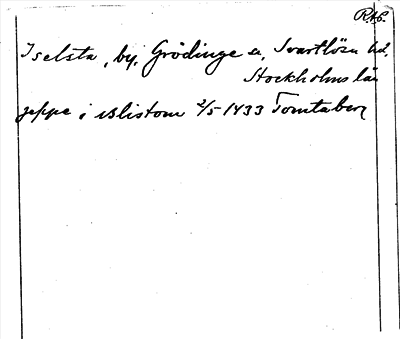 R.A.P.
Iselsta, by, Grödinge sn, Svartlösa hd,
Stockholms län
jeppe i islistom 2/5 1433 Tomtaberg